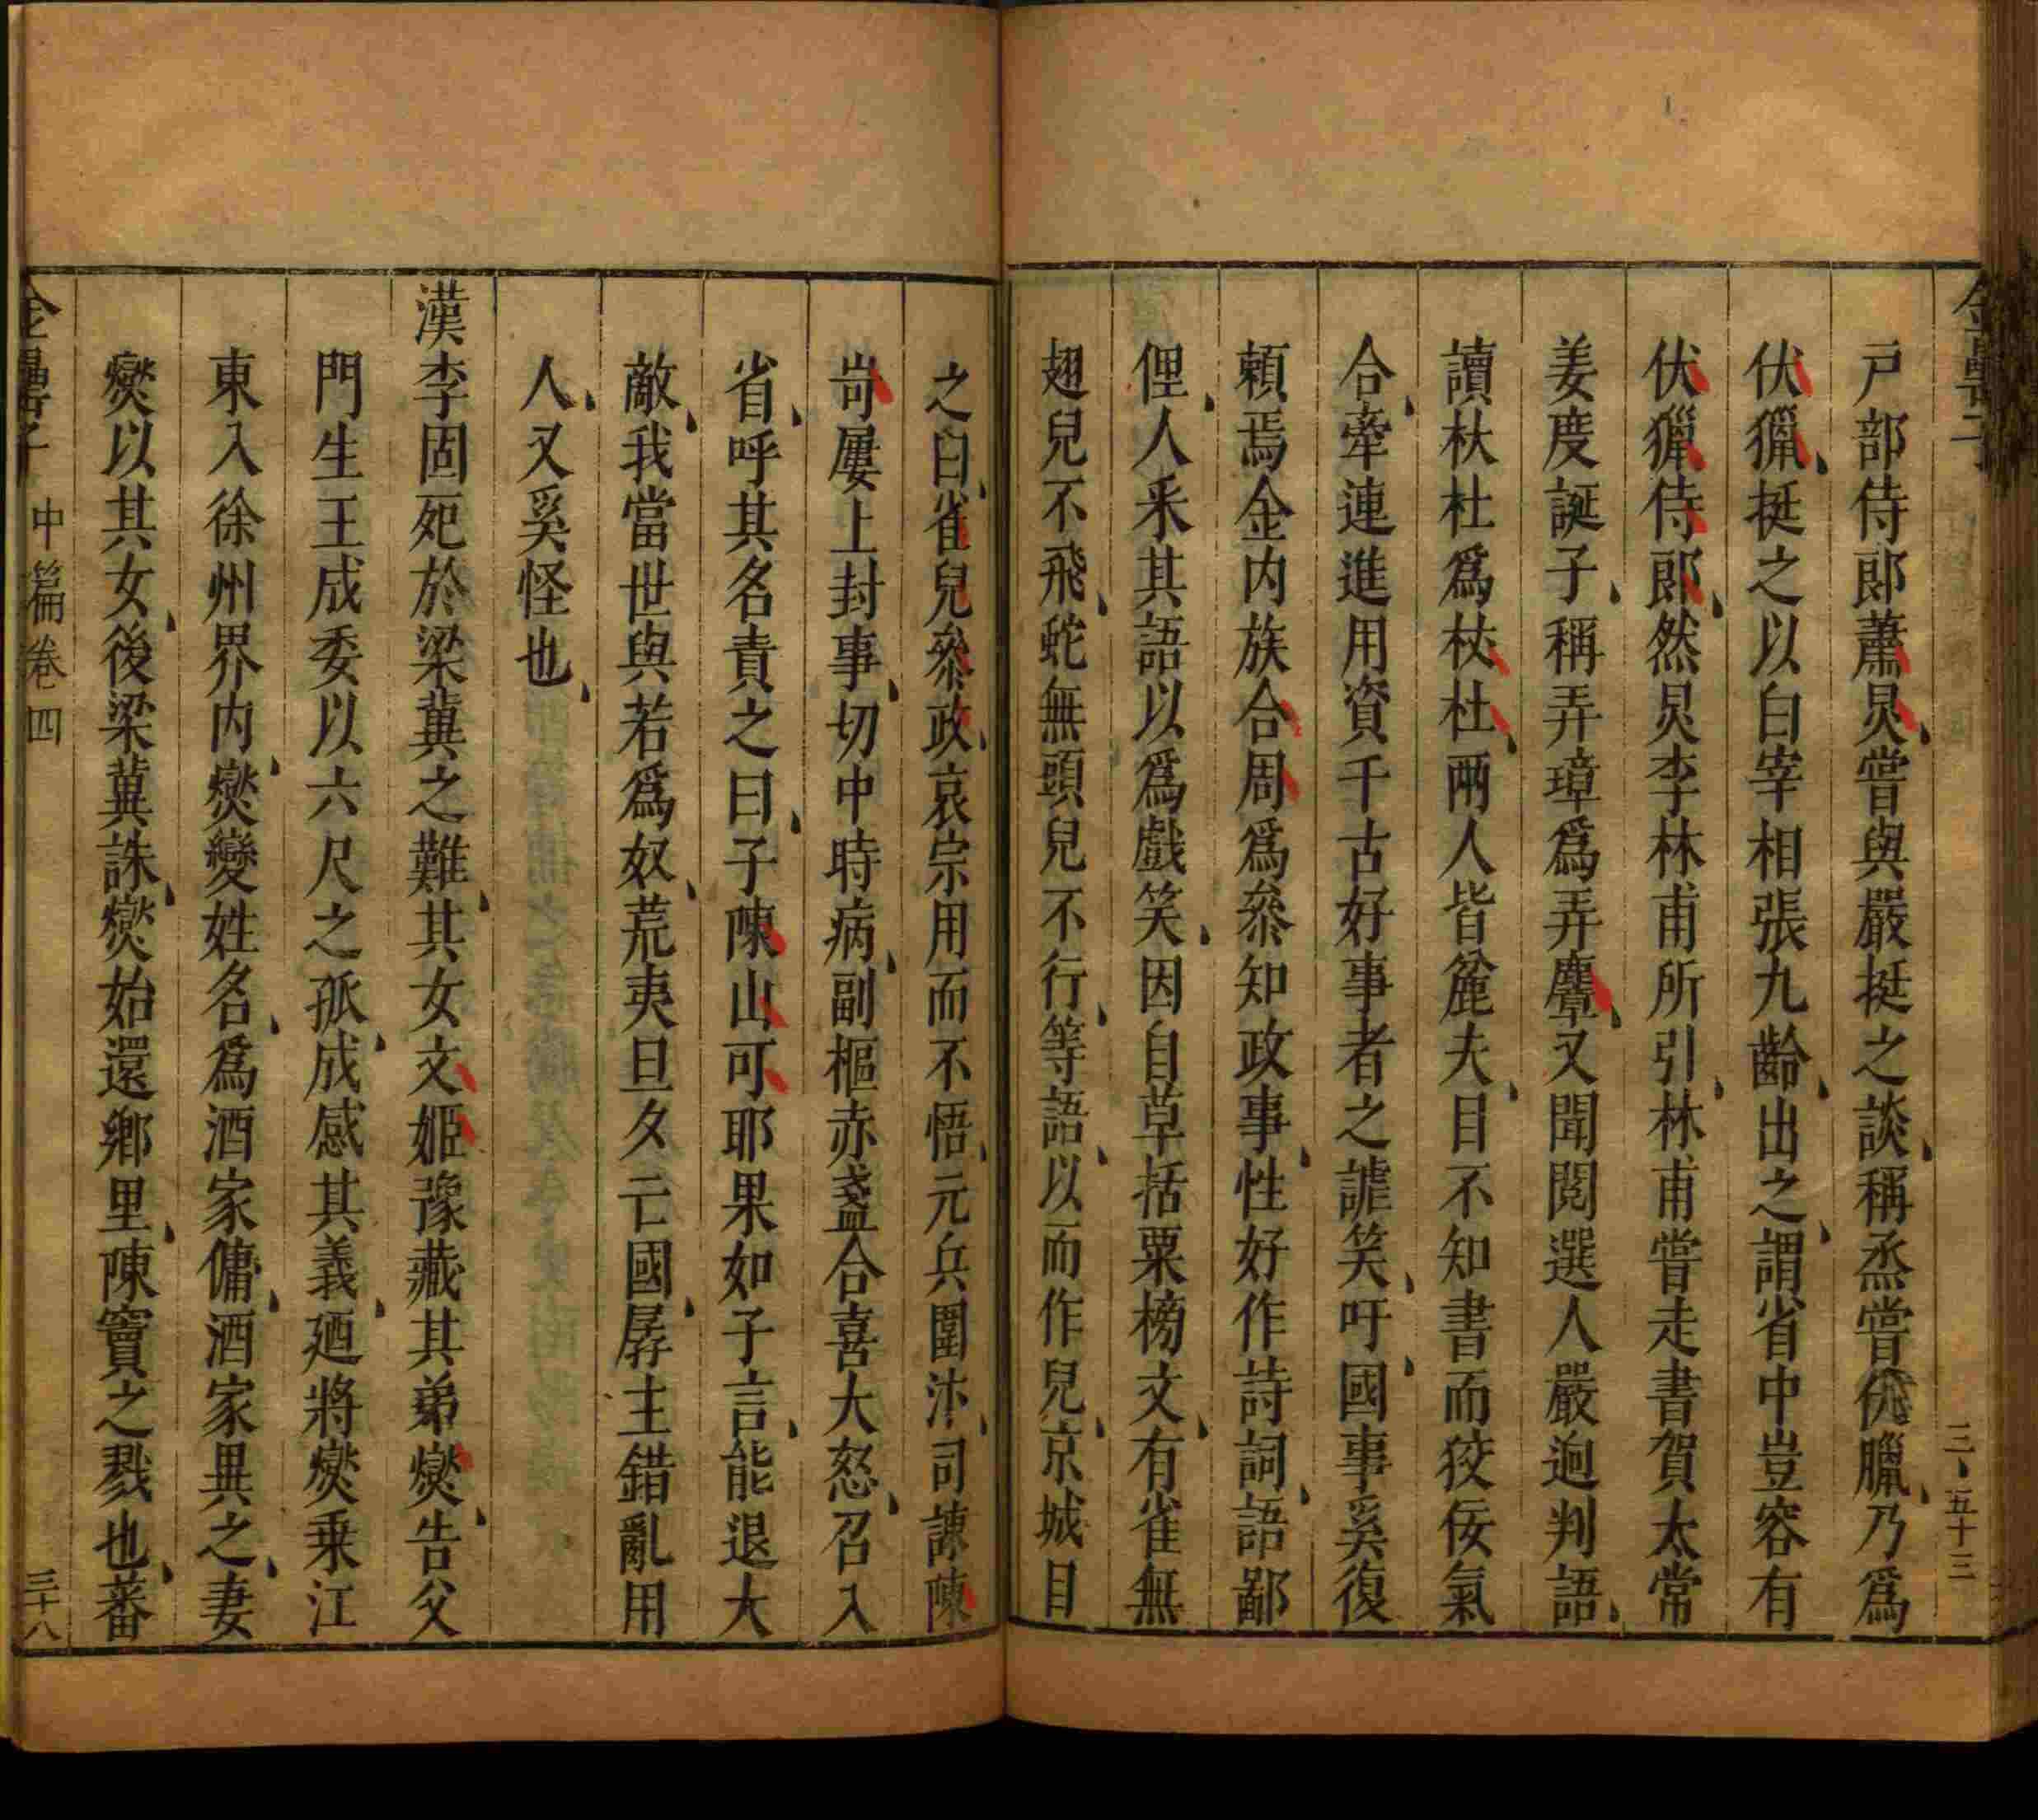 戸部侍郎蕭炅嘗與嚴挺之談稱烝嘗伏臘乃爲
伏獵挺之以白宰相張九齡出之謂省中豈容有
伏獵侍郎然炅李林甫所引林甫嘗走書賀太常
姜度誕子稱弄璋爲弄麞又聞閲選人嚴迥判語
讀杕杜爲杖杜兩人皆麄夫目不知書而狡佞氣
合牽連進用資千古好事者之謔笑吁國事奚復
頼焉金内族合周爲叅知政事性好作詩詞語鄙
俚人采其語以爲戲笑因自草括粟榜文有雀無
翅兒不飛蛇無頭兒不行等語以而作兒京城目
之曰雀兒叅政哀宗用而不悟元兵圍汴司諫陳
岢屢上封事切中時病副樞赤盞合喜大怒召入
省呼其名責之曰子陳山可耶果如子言能退大
敵我當世與若爲奴荒夷旦夕亡國孱主錯亂用
人又奚怪也
漢李固死於梁冀之難其女文姬豫藏其弟燮告父
門生王成委以六尺之孤成感其義廼將燮乗江
東入徐州界内燮變姓名爲酒家傭酒家異之妻
燮以其女後梁冀誅燮始還鄉里陳竇之戮也蕃
中篇卷四
三十八